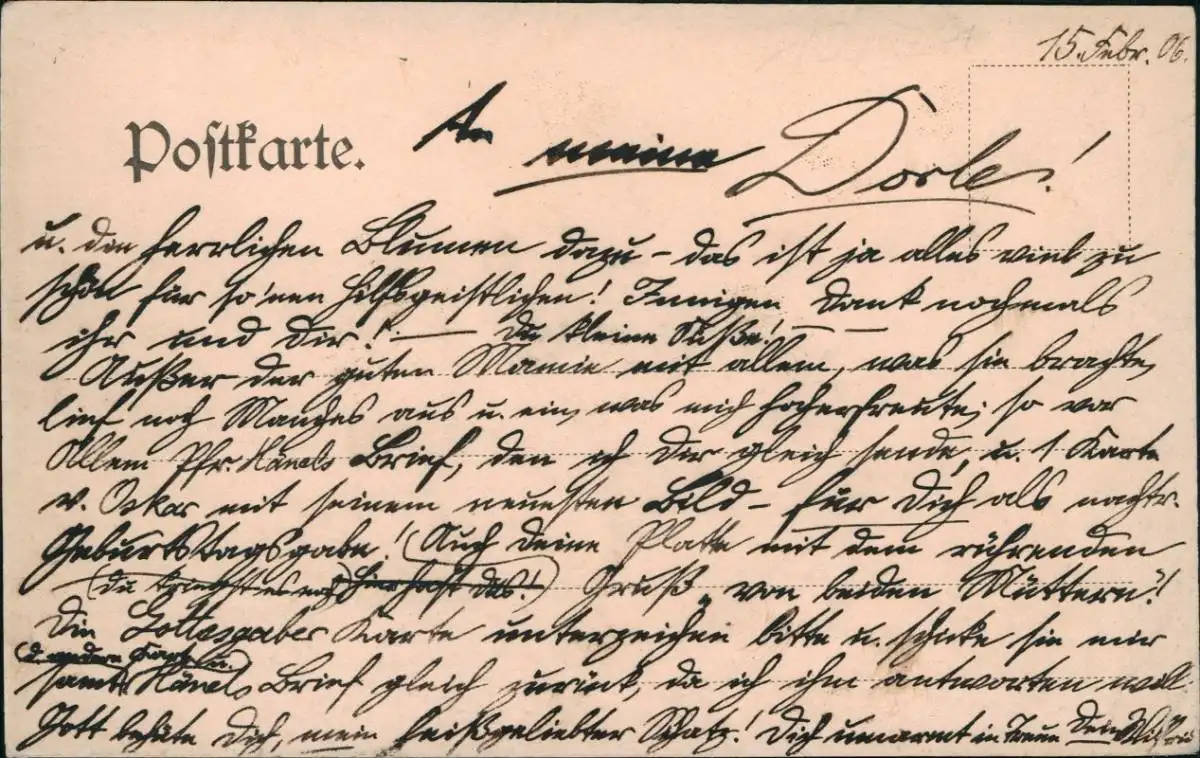 15. Febr. 06.
Postkarte.
An meine Dorle!
u. den herrlichen Blumen dazu – das ist ja alles viel zu
schön für so'nen Hilfsgeistlichen! Innigen Dank nochmals
ihr und Dir! — Du kleine Süße! — —
Außer der guten Mamie mit allem, was sie brachte,
lief noch Manches aus u. ein, was mich hocherfreute; so vor
Allem Pfr. Hänels Brief, den ich Dir gleich sende, u. 1 Karte
v. Oskar mit seinem neuesten Bild – für Dich als nachtr.
Geburtstagsgabe! (Auch deine Platte mit dem rührenden
(du kriegst es noch) hier hast das!) Gruß „von beiden Müttern"!
Die Gottesgaber Karte unterzeichne bitte u. schicke sie mir
(d. andere Karte u.)
samt Hänels Brief gleich zurück, da ich ihm antworten will.
Gott behüte Dich, mein heißgeliebter Schatz! Dich umarmt in Treue Dein